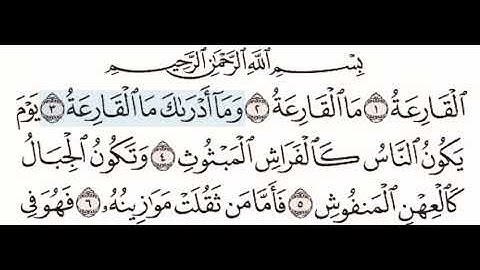 بِسْمِ ٱللَّهِ ٱلرَّحْمَٰنِ ٱلرَّحِيمِ
ٱلْقَارِعَةُ ١ مَا ٱلْقَارِعَةُ ٢ وَمَآ أَدْرَىٰكَ مَا ٱلْقَارِعَةُ ٣ يَوْمَ
يَكُونُ ٱلنَّاسُ كَٱلْفَرَاشِ ٱلْمَبْثُوثِ ٤ وَتَكُونُ ٱلْجِبَالُ
كَٱلْعِهْنِ ٱلْمَنفُوشِ ٥ فَأَمَّا مَن ثَقُلَتْ مَوَٰزِينُهُۥ ٦ فَهُوَ فِى